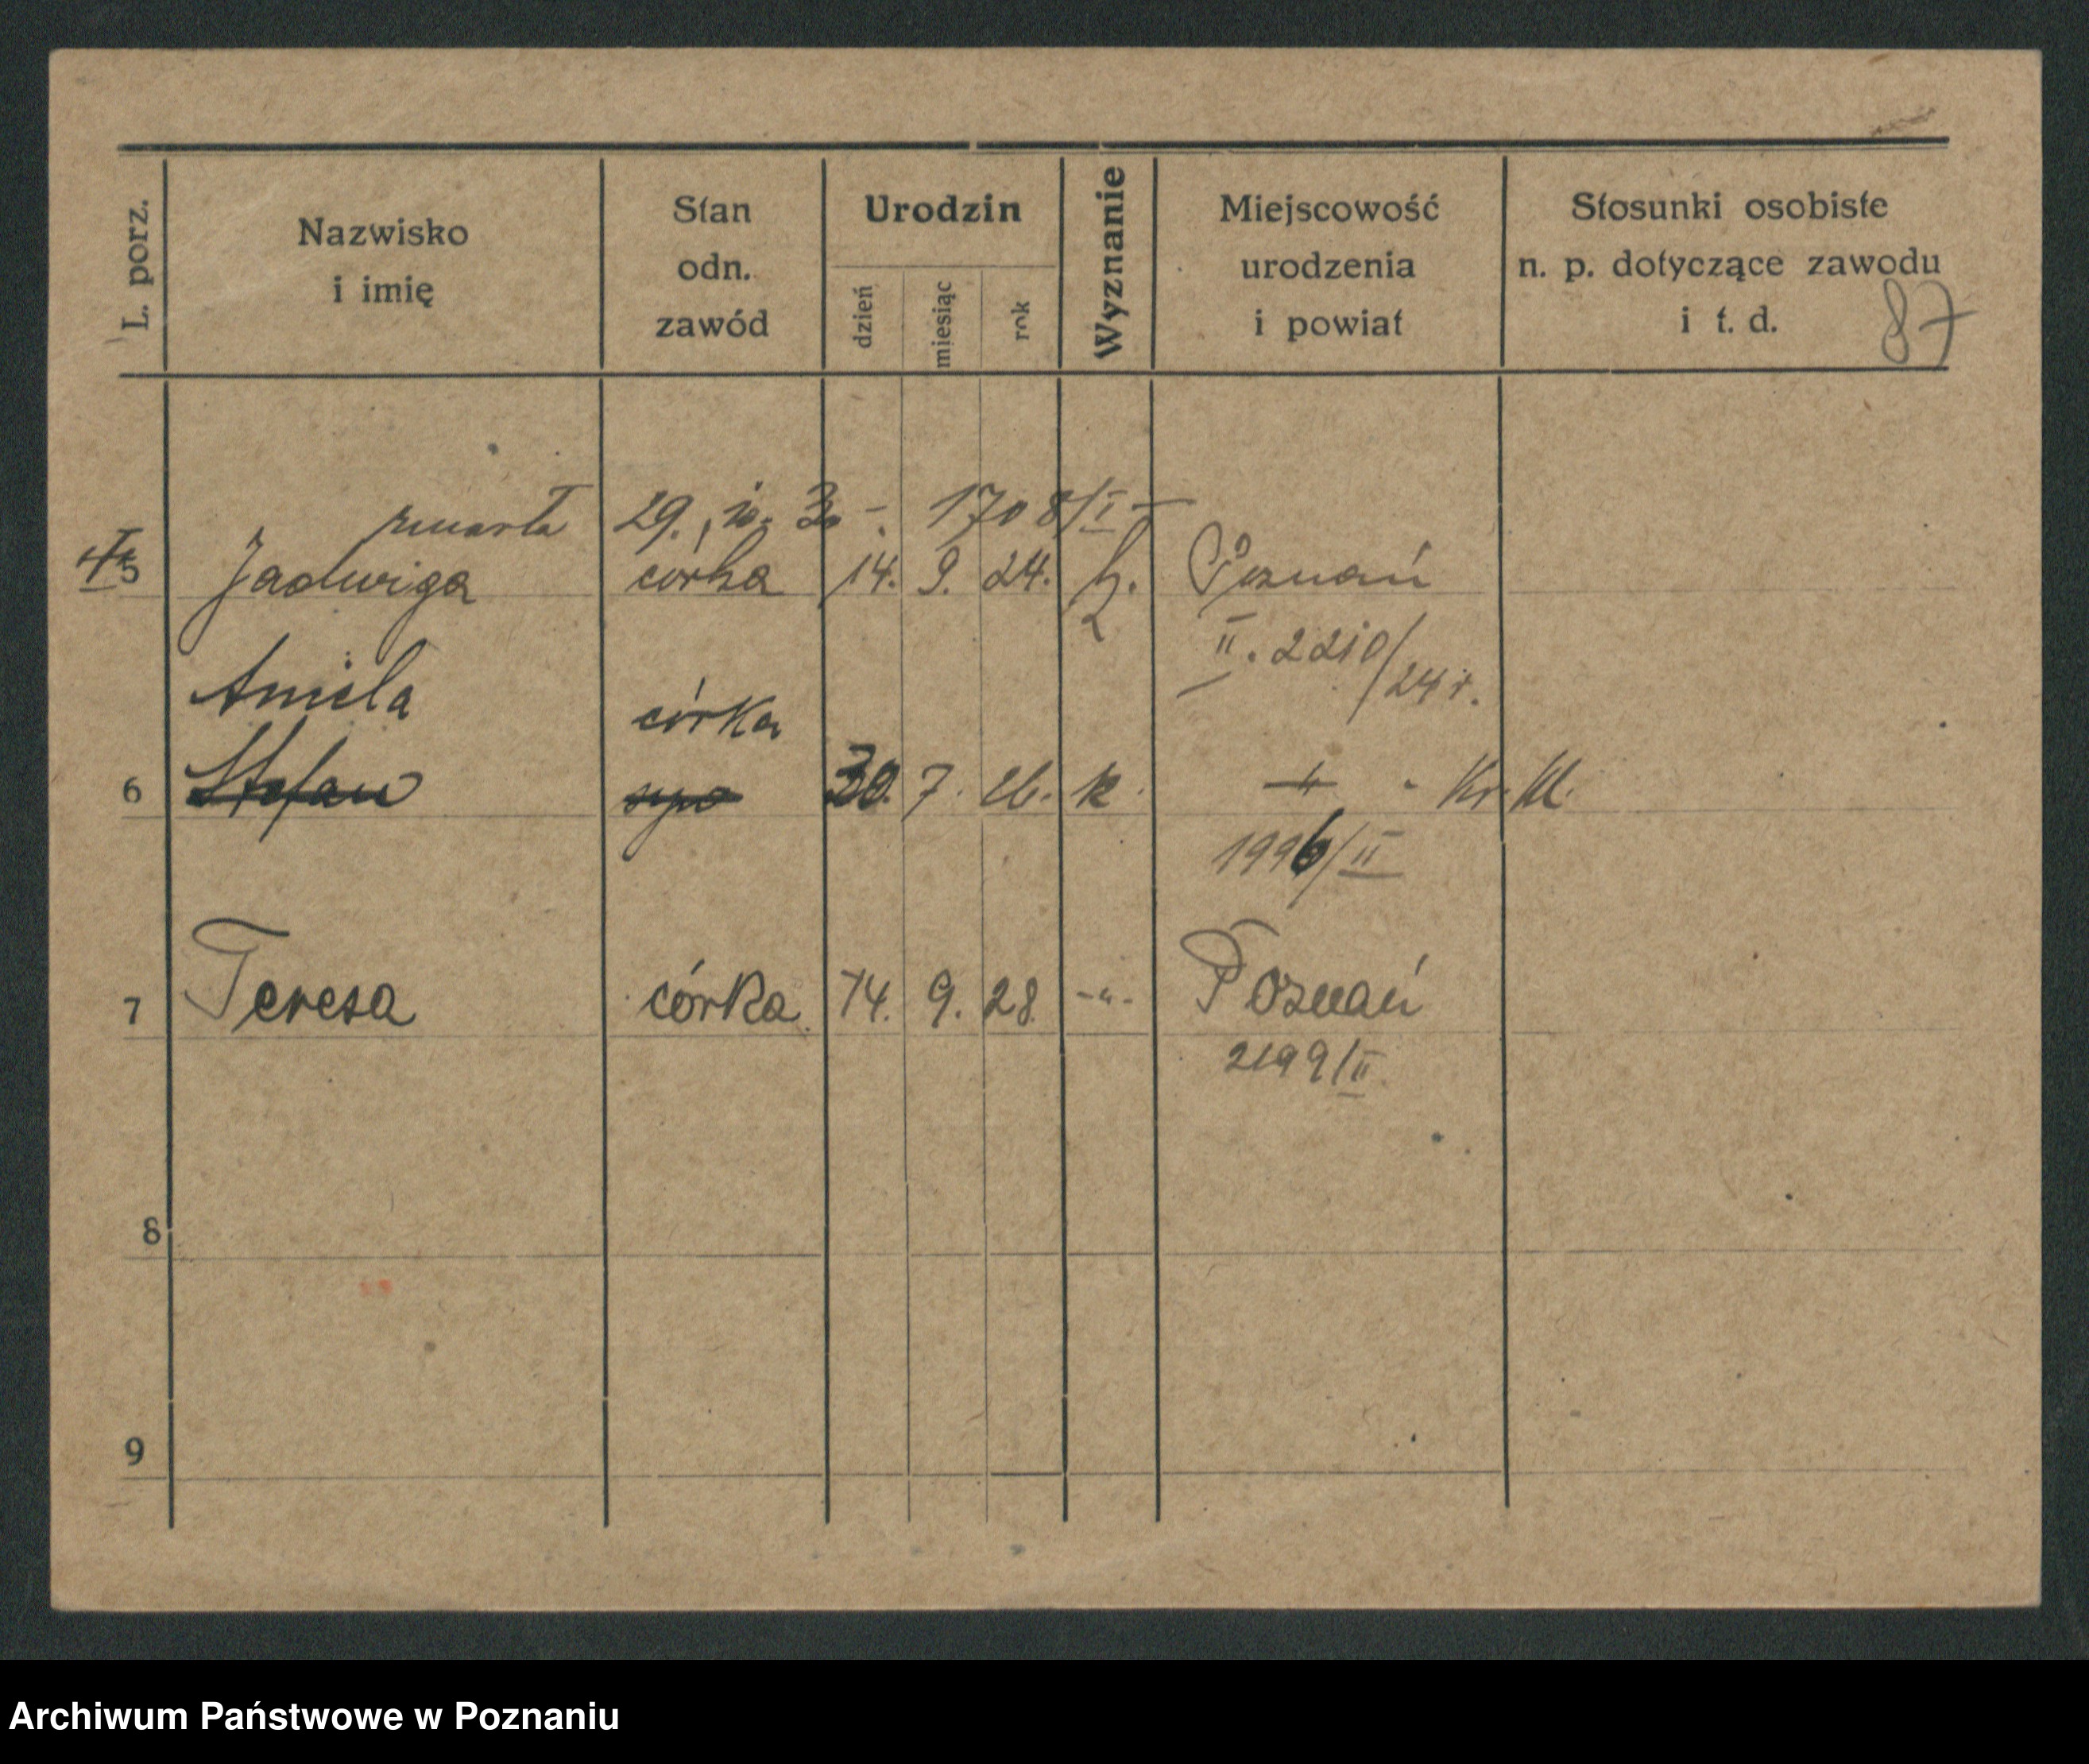 L. porz.
Nazwisko
i imię
Stan
odn.
zawód
Urodzin
dzień
miesiąc
rok
Wyznanie
Miejscowość
urodzenia
i powiat
Stosunki osobiste
n. p. dotyczące zawodu
i t. d.
87
zmarła 29., 10. 30 -. 1708/I -
5 Jadwiga córka 14. 9. 24. k. Poznań
II. 2210/24 r.
Aniela córka
6 Stefan syn 30. 7. 26. k. -"- Kr. Kl.
1996/II
7 Teresa córka 14. 9. 28. -"- Poznań
2199/II
8
9
Archiwum Państwowe w Poznaniu